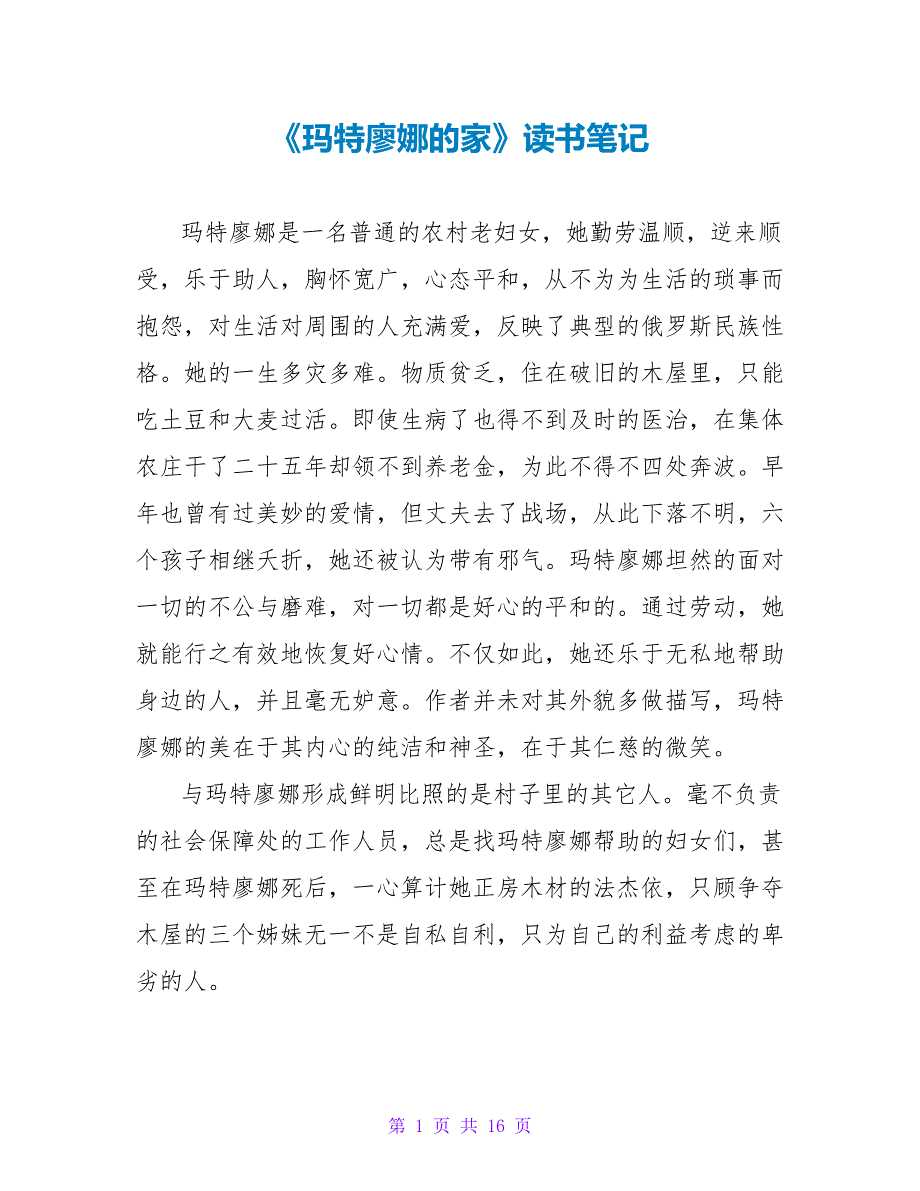 《玛特廖娜的家》读书笔记
玛特廖娜是一名普通的农村老妇女，她勤劳温顺，逆来顺
受，乐于助人，胸怀宽广，心态平和，从不为为生活的琐事而
抱怨，对生活对周围的人充满爱，反映了典型的俄罗斯民族性
格。她的一生多灾多难。物质贫乏，住在破旧的木屋里，只能
吃土豆和大麦过活。即使生病了也得不到及时的医治，在集体
农庄干了二十五年却领不到养老金，为此不得不四处奔波。早
年也曾有过美妙的爱情，但丈夫去了战场，从此下落不明，六
个孩子相继夭折，她还被认为带有邪气。玛特廖娜坦然的面对
一切的不公与磨难，对一切都是好心的平和的。通过劳动，她
就能行之有效地恢复好心情。不仅如此，她还乐于无私地帮助
身边的人，并且毫无妒意。作者并未对其外貌多做描写，玛特
廖娜的美在于其内心的纯洁和神圣，在于其仁慈的微笑。
与玛特廖娜形成鲜明比照的是村子里的其它人。毫不负责
的社会保障处的工作人员，总是找玛特廖娜帮助的妇女们，甚
至在玛特廖娜死后，一心算计她正房木材的法杰依，只顾争夺
木屋的三个姊妹无一不是自私自利，只为自己的利益考虑的卑
劣的人。
第 1 页 共 16 页